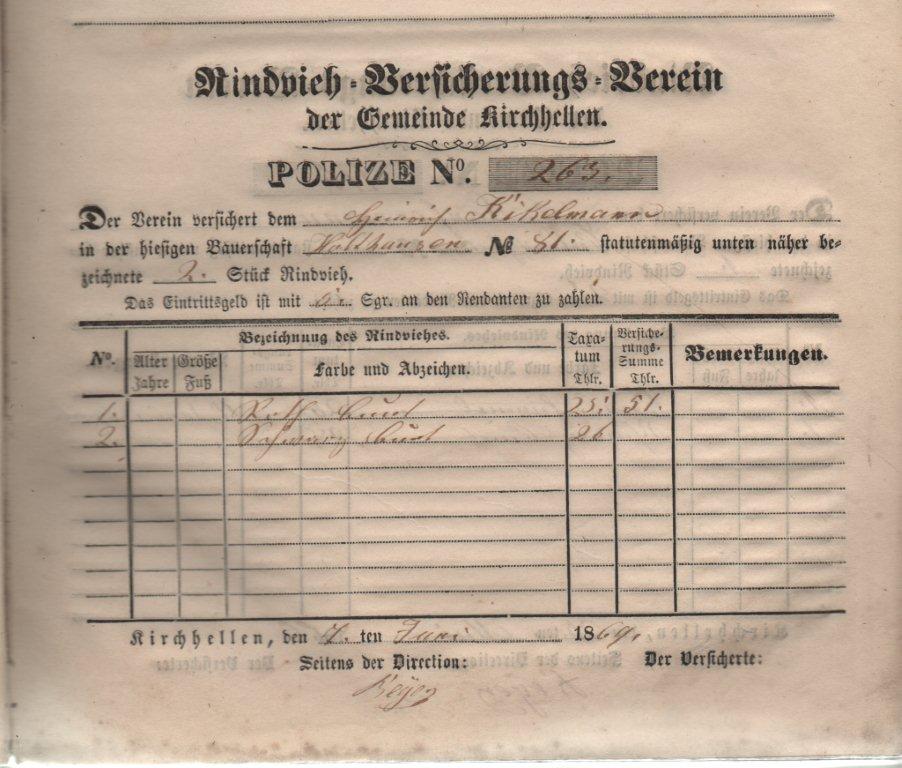 Rindvieh-Versicherungs-Verein
der Gemeinde Kirchhellen.
POLIZE No. 263.
Der Verein versichert dem Heinrich Kikelmann
in der hiesigen Bauerschaft № 81. statutenmäßig unten näher be-
zeichnete 2. Stück Rindvieh.
Das Eintrittsgeld ist mit Sgr. an den Rendanten zu zahlen.
No. Bezeichnung des Rindviehes. Taxa-tum Thlr. Versiche-rungs-Summe Thlr. Bemerkungen.
Alter Jahre Größe Fuß Farbe und Abzeichen.
1. Roth bunt 25 51.
2. Schwarz bunt 26
Kirchhellen, den 7. ten Juni 1869.
Seitens der Direction: Der Versicherte: